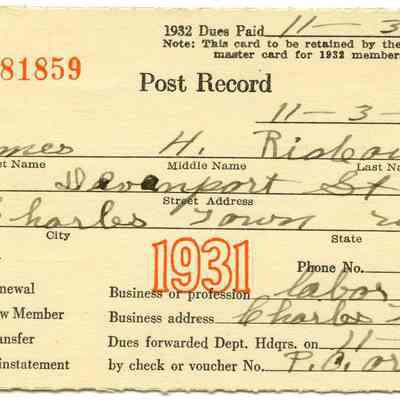 1932 Dues Paid 11-3
Note: This card to be retained by the
master card for 1932 member
81859
Post Record
11-3-
mes H. Ridou
st Name Middle Name Last Na
Davanport St
Street Address
Charles Town
City State
1931
Phone No.
newal
Business or profession labor
w Member
Business address Charles
ansfer
Dues forwarded Dept. Hdqrs. on 11-
instatement
by check or voucher No. P.O. or